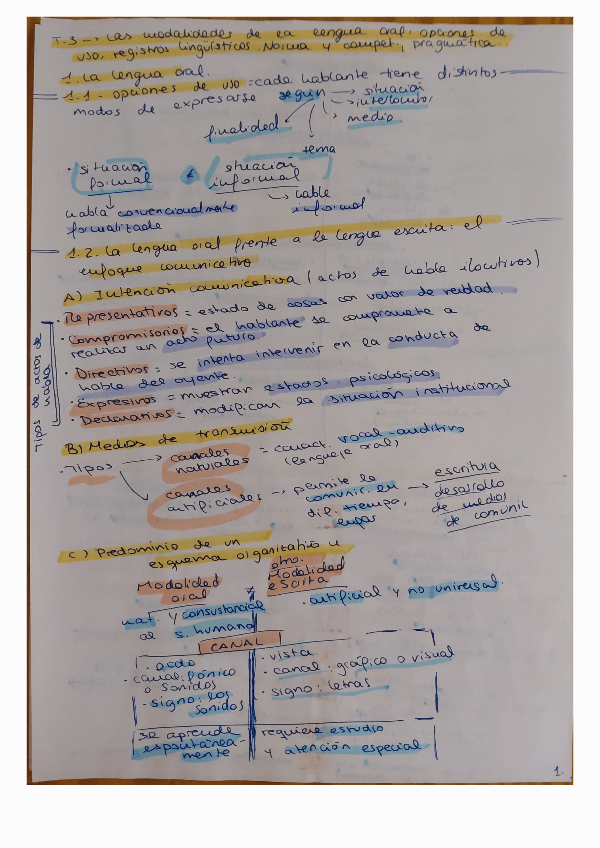 T.3 → Las modalidades de la lengua oral: opciones de
uso, registros lingüísticos. Norma y compet. pragmática.
1. La lengua oral.
1.1 - opciones de uso = cada hablante tiene distintos
modos de expresarse según → situación
→ interlocutor
→ medio
finalidad
tema
· situación formal ≠ situación informal
habla convencionalmente formalizada
→ hable informal
1.2. La lengua oral frente a la lengua escrita: el
enfoque comunicativo
A) Intención comunicativa (actos de habla ilocutivos)
Tipos de actos de habla
· Representativos = estado de cosas con valor de verdad.
· Compromisorios = el hablante se compromete a
realizar un acto futuro.
· Directivos = se intenta intervenir en la conducta de
hable del oyente.
· Expresivos = muestran estados psicológicos
· Declarativos = modifican la situación institucional
B) Medios de transmisión
· Tipos → canales naturales = caract. vocal-auditivo
(lenguaje oral)
canales artificiales → permite la
comunic. en
dif. tiempo,
lugar
→ escritura
desarrollo
de medios
de comunic
C) Predominio de un
esquema organizativo u
otro.
Modalidad oral ≠ Modalidad escrita
nat. y consustancial
al s. humano
· artificial y no universal.
CANAL
· oído
· canal: fónico
o sonidos
· signo: los
sonidos
· vista
· canal: gráfico o visual
· signo: letras
se aprende
espontánea-
mente
requiere estudio
y atención especial
1.